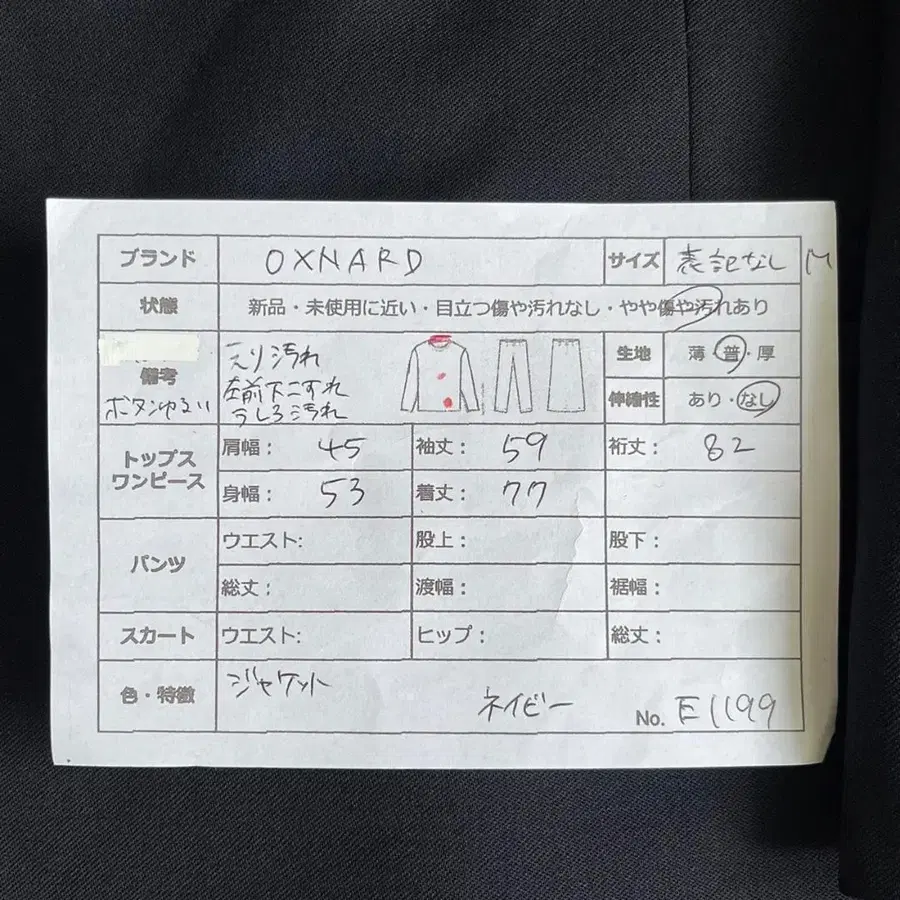 ブランド OXNARD サイズ 表記なし M
状態 新品・未使用に近い・目立つ傷や汚れなし・やや傷や汚れあり
備考 ボタンゆるい
えり汚れ
左前下こすれ
うしろ汚れ
生地 薄・普・厚
伸縮性 あり・なし
トップス
ワンピース
肩幅: 45 袖丈: 59 裄丈: 82
身幅: 53 着丈: 77
パンツ
ウエスト: 股上: 股下:
総丈: 渡幅: 裾幅:
スカート ウエスト: ヒップ: 総丈:
色・特徴 ジャケット
ネイビー No. E1199